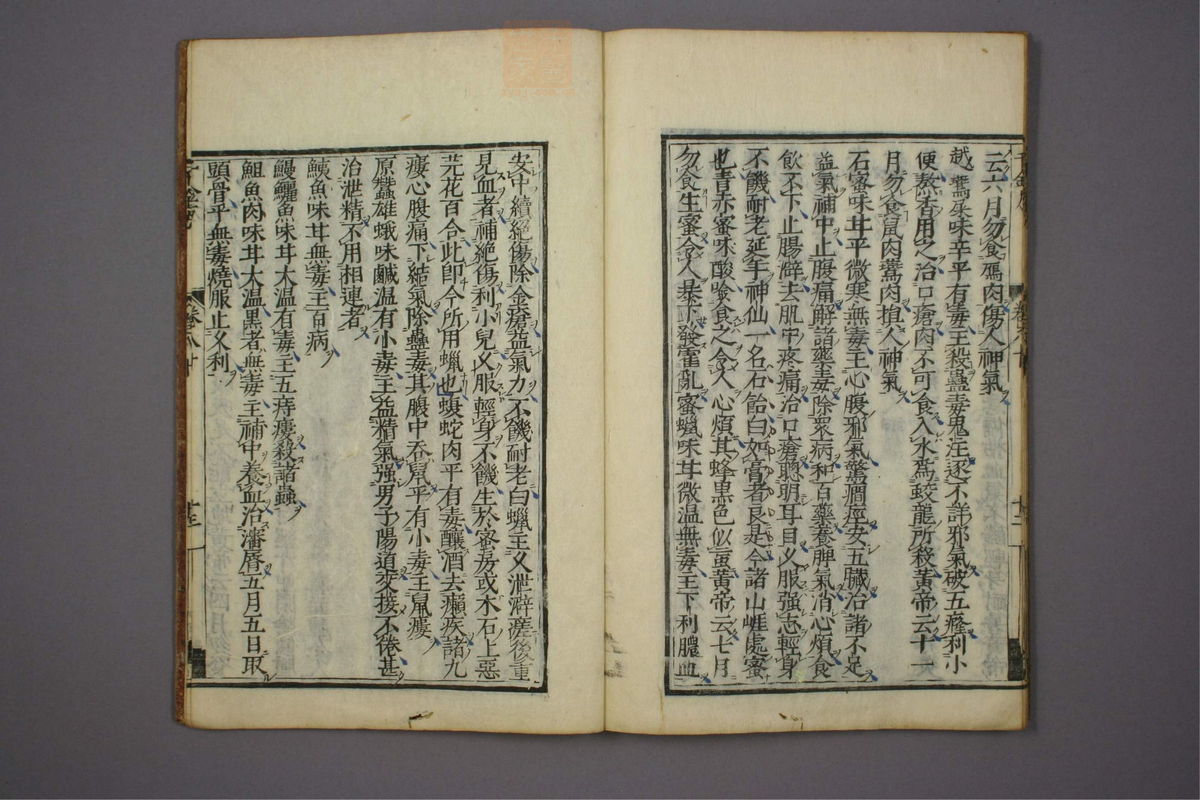 云六月勿食鴈肉傷人神氣
越鷰屎味辛平有毒主殺蠱毒鬼注逐不詳邪氣破五癃利小
便熬香用之治口瘡肉不可食入水爲蛟龍所殺黃帝云十一
月勿食鼠肉鷰肉損人神氣
石蜜味甘平微寒無毒主心腹邪氣驚癇痓安五臟治諸不足
益氣補中止腹痛解諸藥毒除衆病和百藥養脾氣消心煩食
飲不下止腸澼去肌中疼痛治口瘡聰明耳目久服强志輕身
不饑耐老延年神仙一名石飴白如膏者良是今諸山崖處蜜
也青赤蜜味酸噞食之令人心煩其蜂黑色似䖟黃帝云七月
勿食生蜜令人暴下發霍亂蜜蠟味甘微溫無毒主下利膿血
安中續絕傷除金瘡益氣力不饑耐老白蠟主久泄澼瘥後重
見血者補絕傷利小兒久服輕身不饑生於蜜房或木石上惡
芫花百合此即今所用蠟也蝮蛇肉平有毒釀酒去癩疾諸九
瘻心腹痛下結氣除蠱毒其腹中吞鼠平有小毒主鼠瘻
原蠶雄蛾味鹹溫有小毒主益精氣强男子陽道交接不倦甚
治泄精不用相連者
鮧魚味甘無毒主百病
鰻鱺魚味甘大溫有毒主五痔瘻殺諸蟲
䱉魚肉味甘大溫黑者無毒主補中養血治瀋脣五月五日取
頭骨平無毒燒服止久利